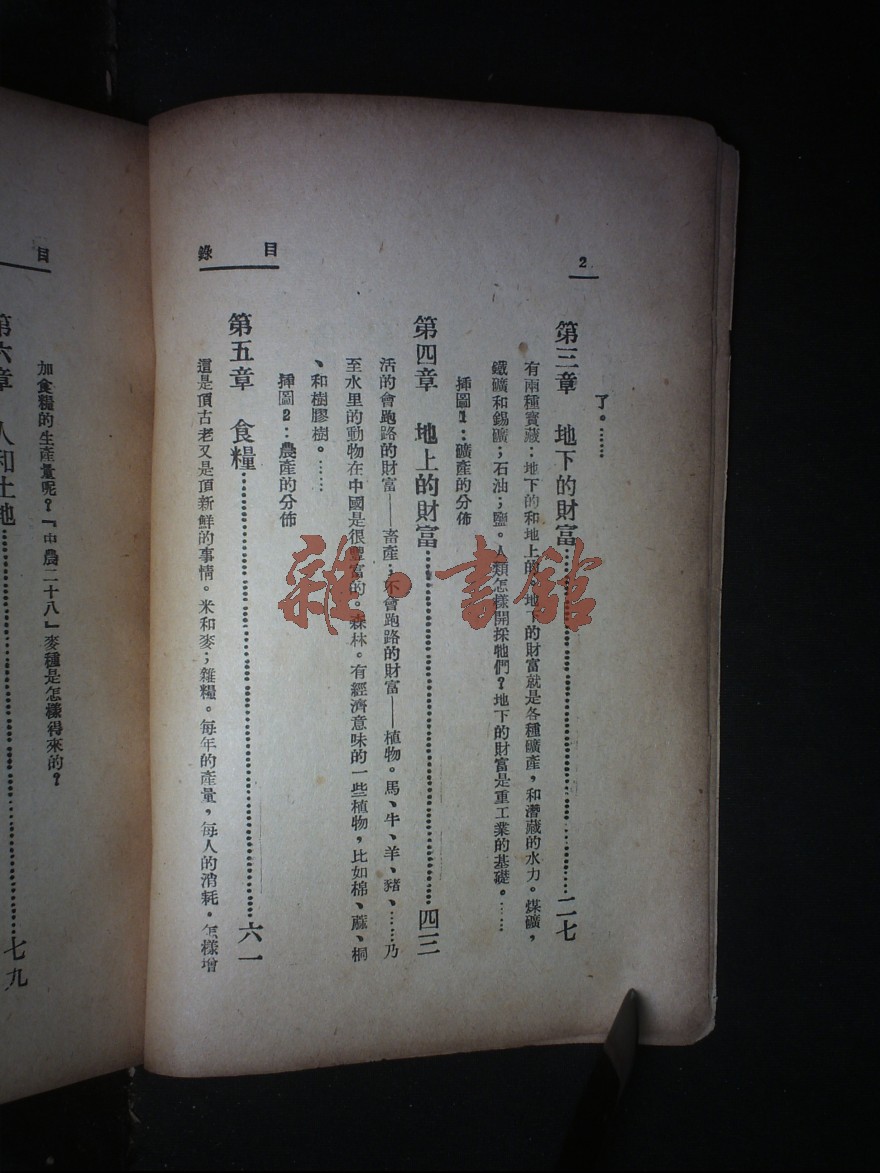 2
目錄
了。……
第三章 地下的財富……二七
有兩種寶藏：地下的和地上的。地下的財富就是各種礦產，和潛藏的水力。煤礦，
鐵礦和錫礦；石油；鹽。人類怎樣開採牠們？地下的財富是重工業的基礎。……
挿圖1：礦產的分佈
第四章 地上的財富……四三
活的會跑路的財富——畜產；不會跑路的財富——植物。馬、牛、羊、豬、……乃
至水里的動物在中國是很豐富的。森林。有經濟意味的一些植物，比如棉、蔴、桐
、和樹膠樹。……
挿圖2：農產的分佈
第五章 食糧……六一
這是頂古老又是頂新鮮的事情。米和麥；雜糧。每年的產量，每人的消耗。怎樣增
目
加食糧的生產量呢？「中農二十八」麥種是怎樣得來的？
第六章 人和土地……七九
雜·書館